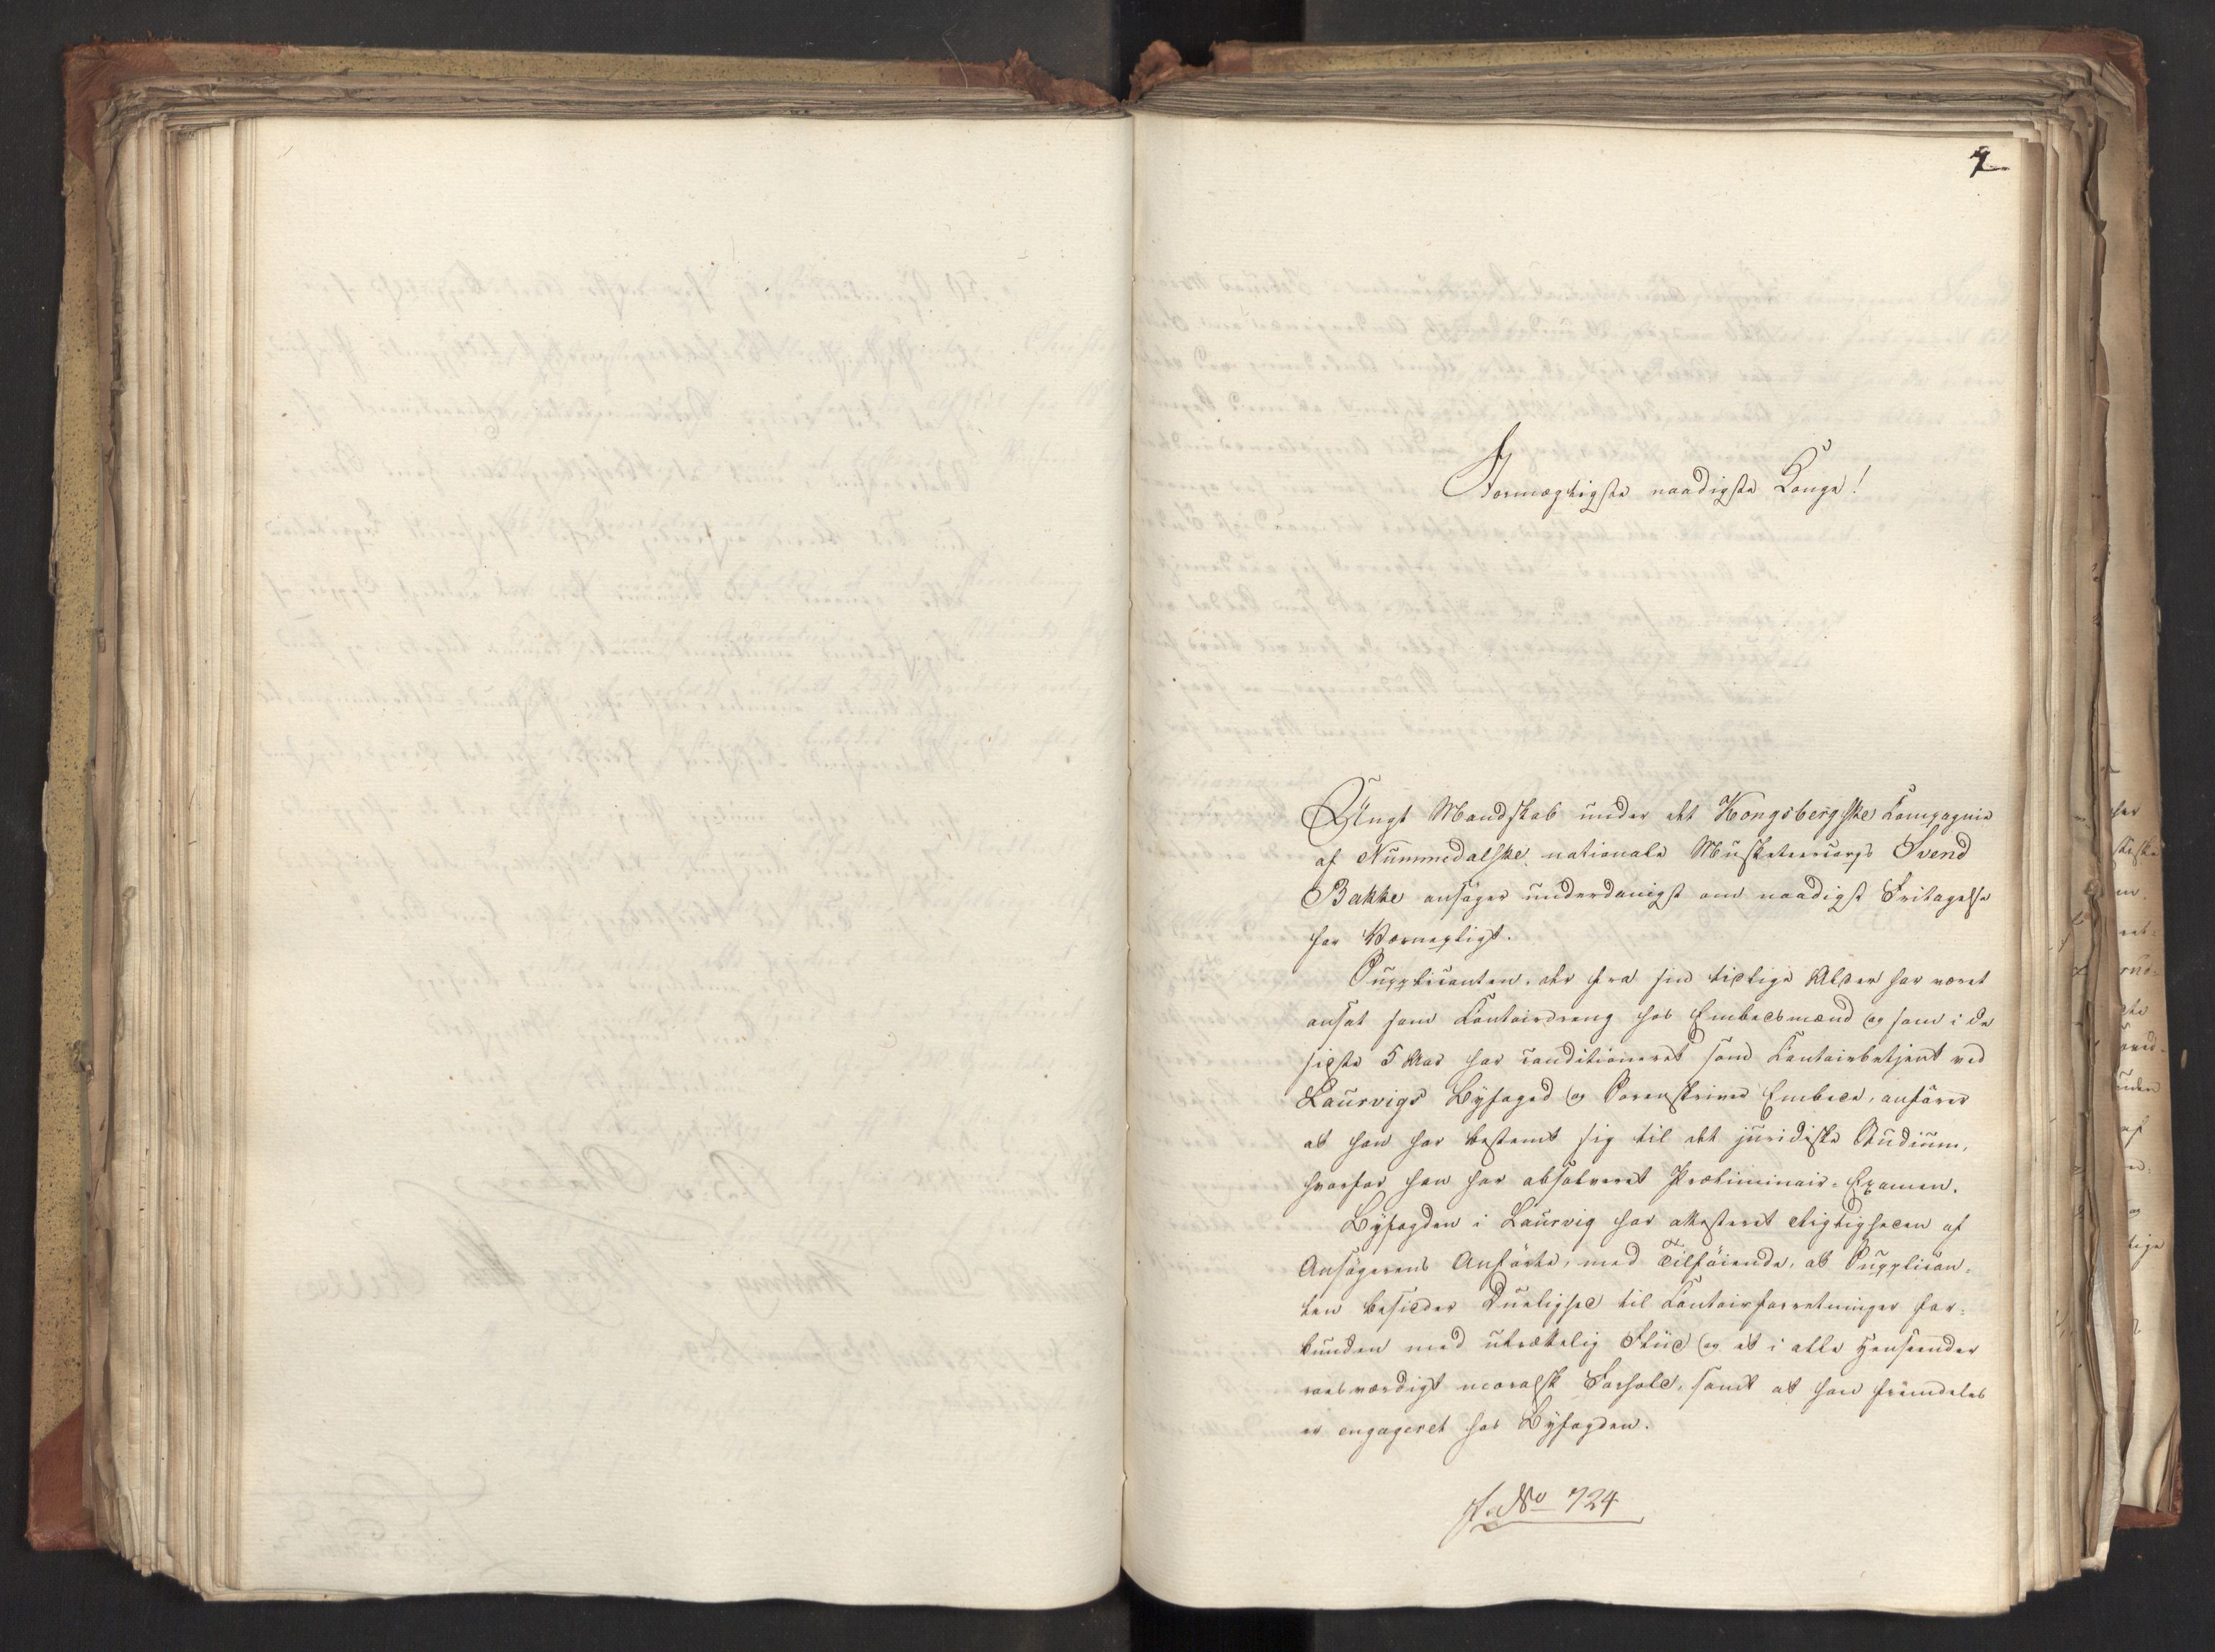 7
Stormægtigste naadigste Konge!
Ungt Mandskab under det Kongsbergske Compagnie
af Nummedalske nationale Musketeercorps Svend
Bakke ansøger underdanigst om naadigst Fritagelse
for Værnepligt.
Supplicanten, der fra sin tidlige Alder har været
ansat som Contoirdreng hos Embedsmænd og som i de
sidste 5 Aar har conditioneret som Contoirbetjent ved
Laurvigs Byfoged og Sorenskriver Embede, anfører
at han har bestemt sig til det juridiske Studium,
hvorfor han har absolveret Præliminair-Examen.
Byfogden i Laurvig har attesteret Rigtigheden af
Ansøgerens Anførte, med Tilføiende, at Supplican-
ten besidder Duelighed til Contoirforretninger for-
bunden med utrættelig Fliid og et i alle Henseender
roesværdigt moralsk Forhold, samt at han fremdeles
er engageret hos Byfogden.
J. No 724